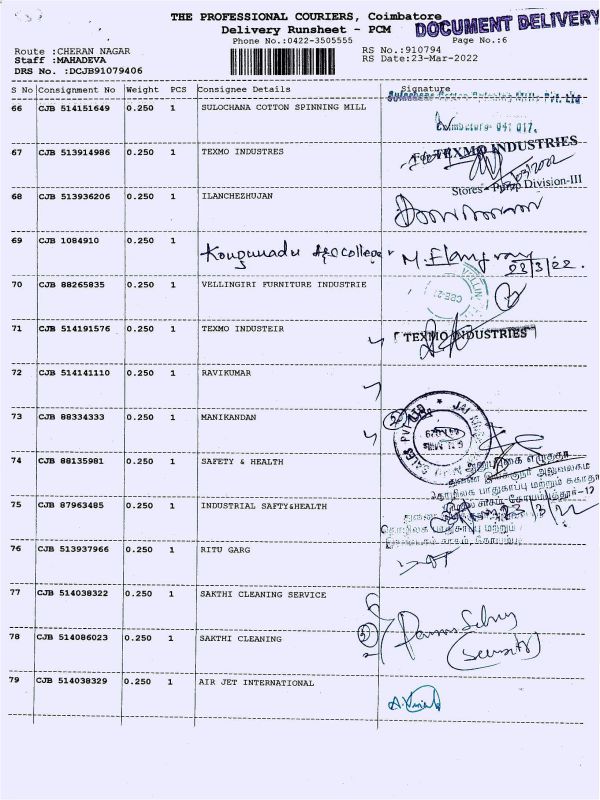 THE PROFESSIONAL COURIERS, Coimbatore
DOCUMENT DELIVERY
Delivery Runsheet - PCM
Phone No.:0422-3505555
Page No.:6
Route :CHERAN NAGAR
RS No.:910794
Staff :MAHADEVA
RS Date:23-Mar-2022
DRS No. :DCJB91079406
S No Consignment No Weight PCS Consignee Details Signature
66 CJB 514151649 0.250 1 SULOCHANA COTTON SPINNING MILL
Pvt. Ltd
641 017.
67 CJB 513914986 0.250 1 TEXMO INDUSTRES
TEXMO INDUSTRIES
Stores - Pump Division-III
68 CJB 513936206 0.250 1 ILANCHEZHUJAN
69 CJB 1084910 1
Kongunadu college
23/3/22.
70 CJB 88265835 0.250 1 VELLINGIRI FURNITURE INDUSTRIE
71 CJB 514191576 0.250 1 TEXMO INDUSTEIR
TEXMO INDUSTRIES
72 CJB 514141110 0.250 1 RAVIKUMAR
73 CJB 88334333 0.250 1 MANIKANDAN
74 CJB 88135981 0.250 1 SAFETY & HEALTH
75 CJB 87963485 0.250 1 INDUSTRIAL SAFTY&HEALTH
76 CJB 513937966 0.250 1 RITU GARG
77 CJB 514038322 0.250 1 SAKTHI CLEANING SERVICE
78 CJB 514086023 0.250 1 SAKTHI CLEANING
(Security)
79 CJB 514038329 0.250 1 AIR JET INTERNATIONAL